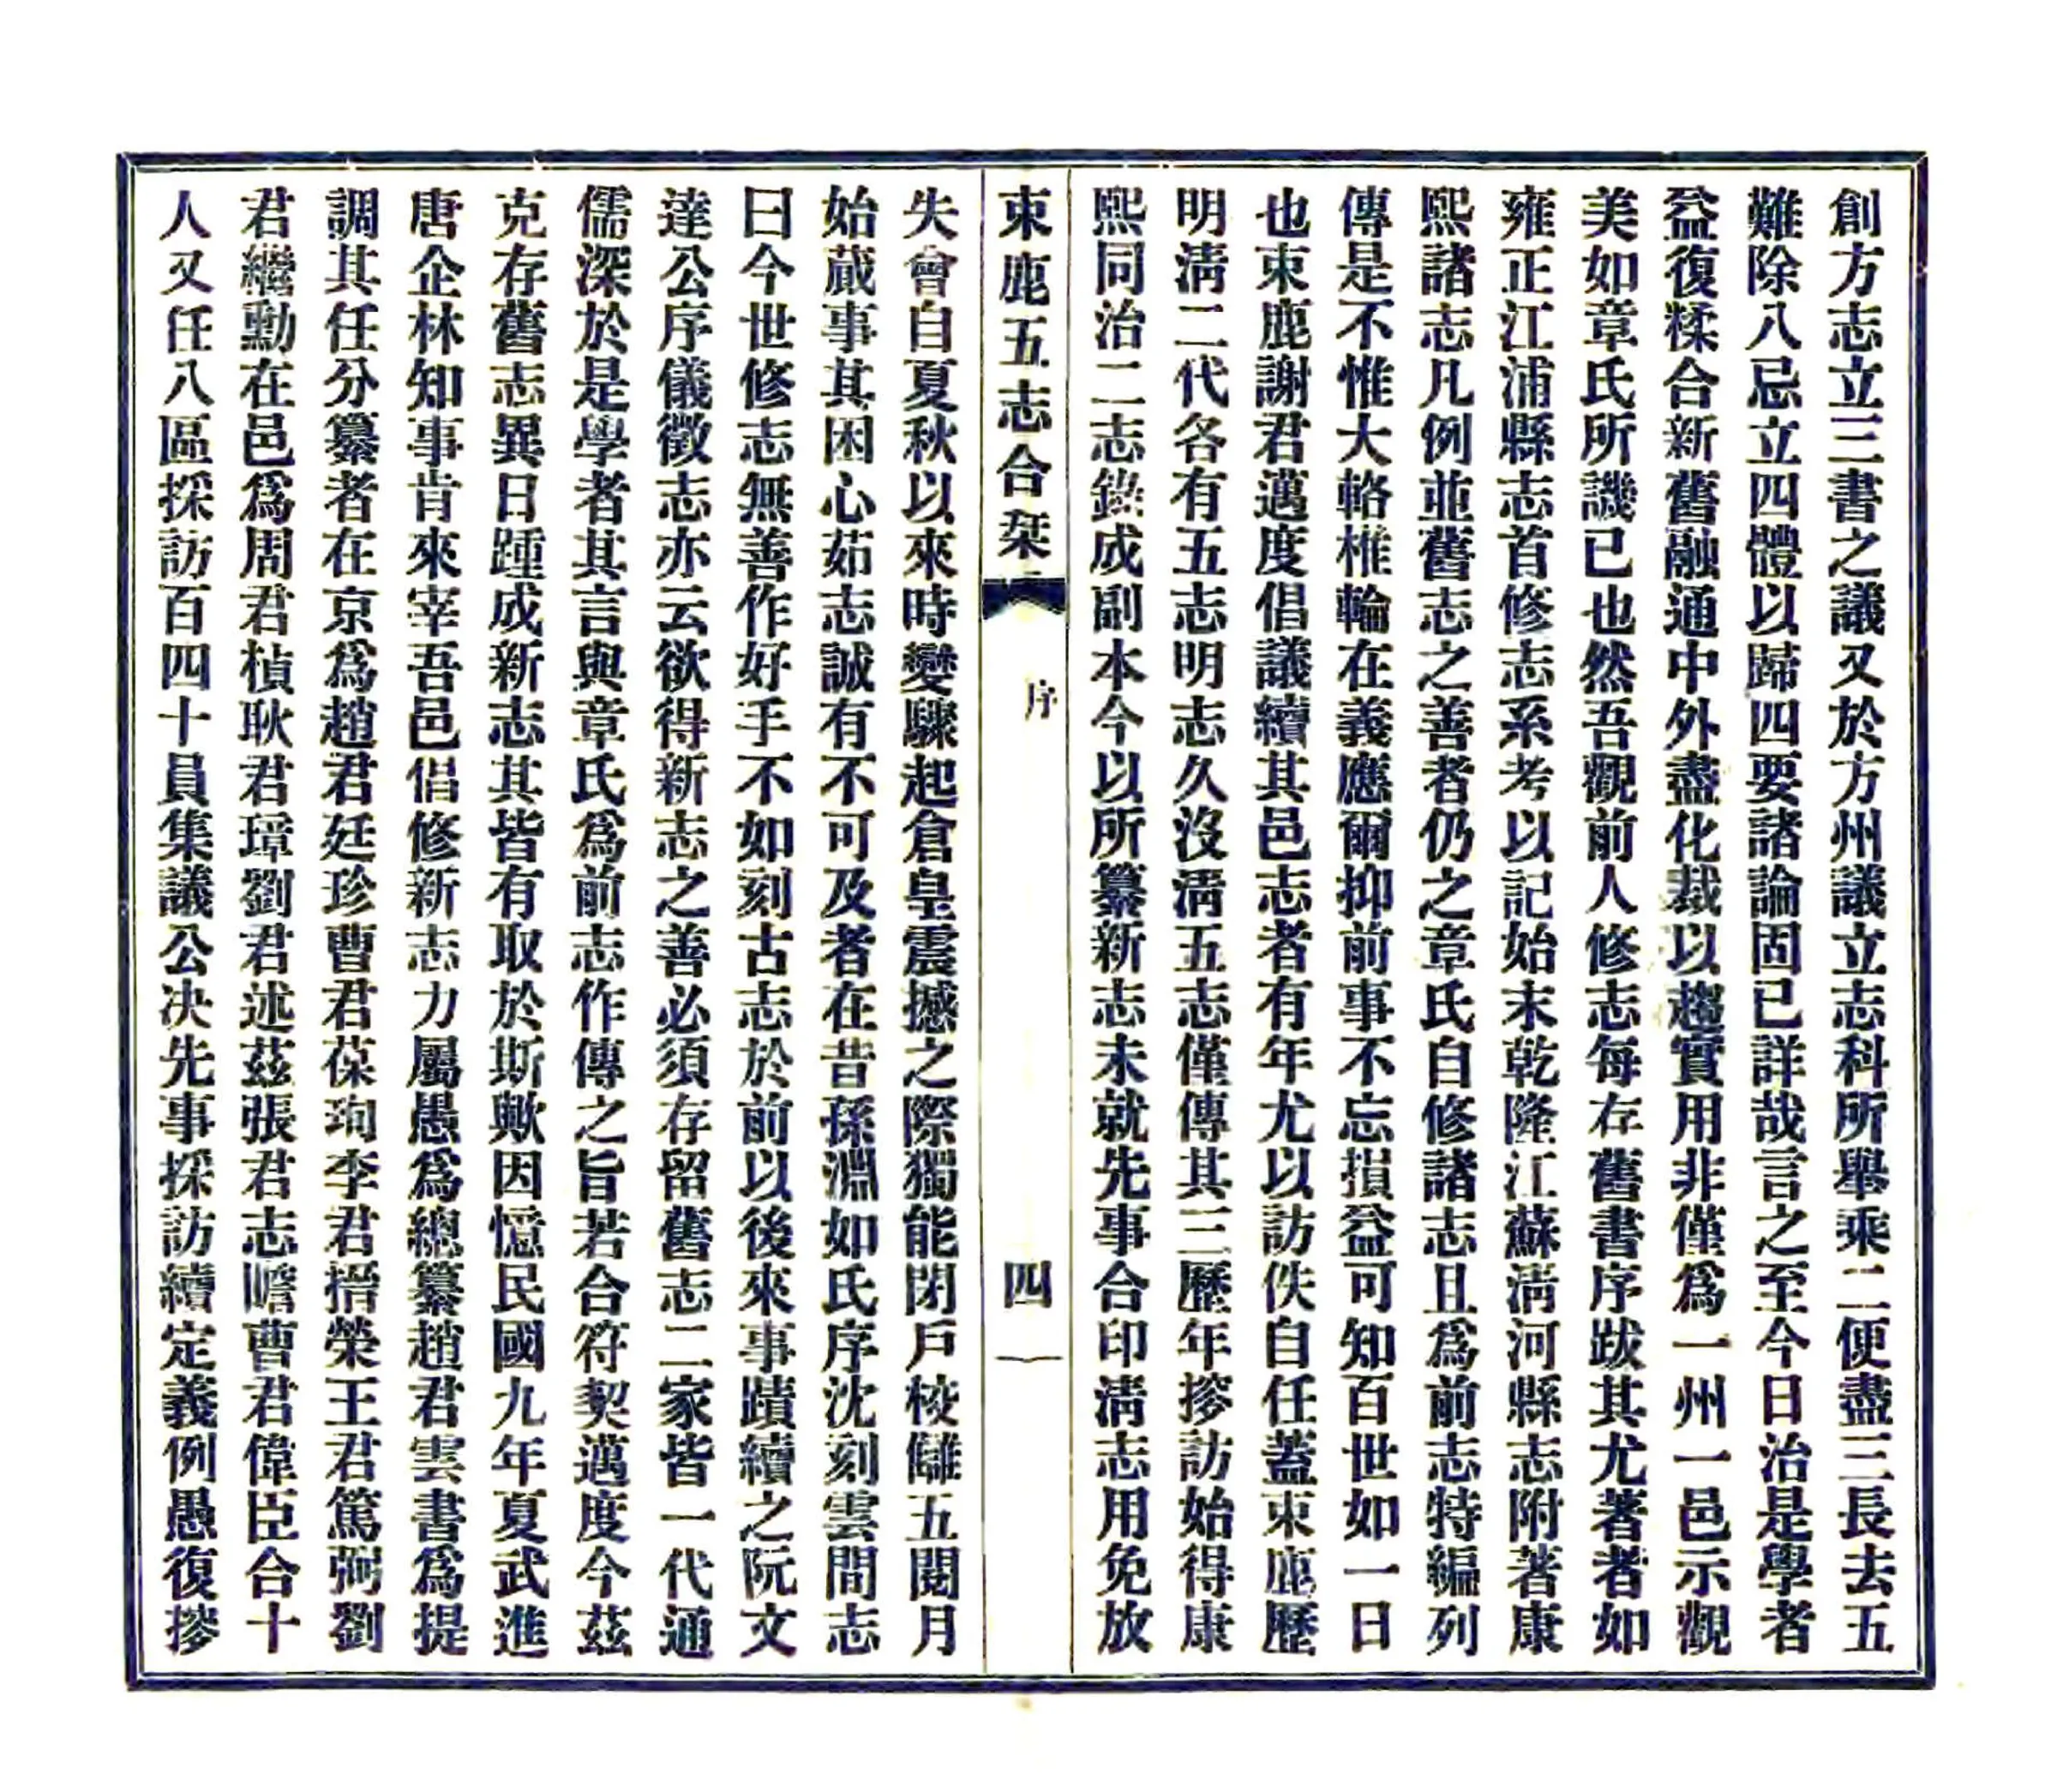 創方志立三書之議又於方州議立志科所舉乘二便盡三長去五
難除八忌立四體以歸四要諸論固已詳哉言之至今日治是學者
益復糅合新舊融通中外盡化裁以趨實用非僅爲一州一邑示觀
美如章氏所譏已也然吾觀前人修志每存舊書序跋其尤著者如
雍正江浦縣志首修志系考以記始末乾隆江蘇淸河縣志附著康
熙諸志凡例並舊志之善者仍之章氏自修諸志且爲前志特編列
傳是不惟大輅椎輪在義應爾抑前事不忘損益可知百世如一日
也束鹿謝君邁度倡議續其邑志者有年尤以訪佚自任蓋束鹿歷
明淸二代各有五志明志久沒淸五志僅傳其三歷年摉訪始得康
熙同治二志錄成副本今以所纂新志未就先事合印淸志用免放
束鹿五志合栞
序
四
失會自夏秋以來時變驟起倉皇震撼之際獨能閉戶校讎五閱月
始蕆事其困心茹志誠有不可及者在昔孫淵如氏序沈刻雲間志
曰今世修志無善作好手不如刻古志於前以後來事蹟續之阮文
達公序儀徵志亦云欲得新志之善必須存留舊志二家皆一代通
儒深於是學者其言與章氏爲前志作傳之旨若合符契邁度今茲
克存舊志異日踵成新志其皆有取於斯歟因憶民國九年夏武進
唐企林知事肯來宰吾邑倡修新志力屬愚爲總纂趙君雲書爲提
調其任分纂者在京爲趙君廷珍曹君葆珣李君搢榮王君篤弼劉
君繼勳在邑爲周君楨耿君璋劉君述茲張君志瞻曹君偉臣合十
人又任八區採訪百四十員集議公决先事採訪續定義例愚復摉